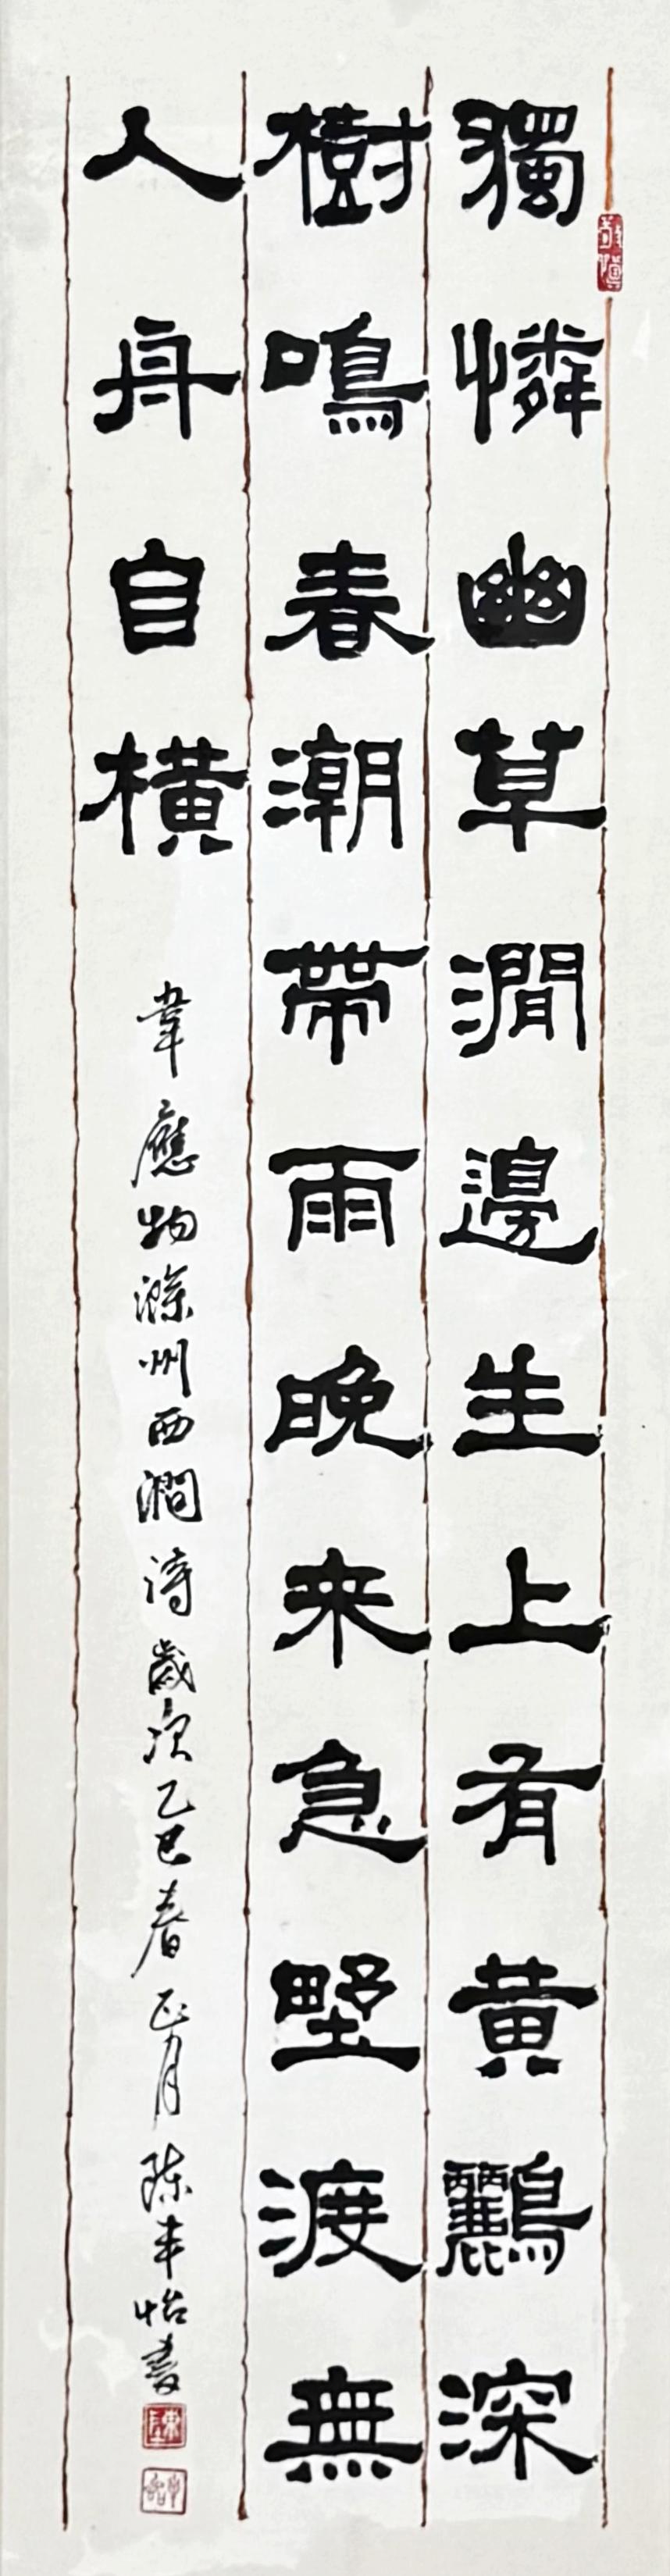 獨憐幽草澗邊生上有黄鸝深
樹鳴春潮帶雨晚来急野渡無
人舟自橫
韋應物滁州西澗詩歲次乙巳春正月陳丰怡書